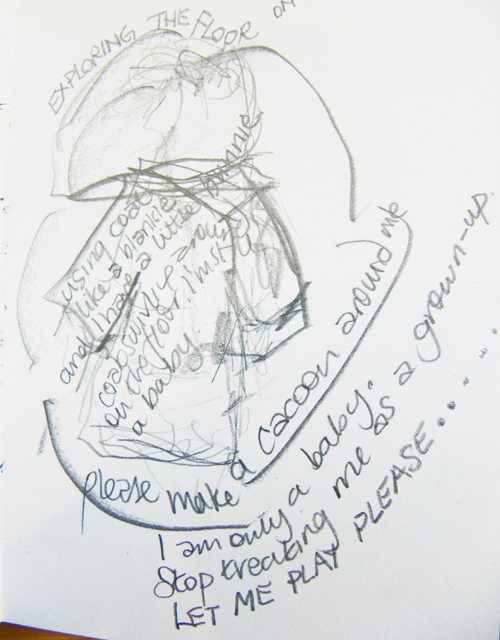 EXPLORING THE FLOOR ON
using coat
like a blankie
and I have a little
coat around
on the floor. I'm st
a baby
please make a cacoon around me
I am only a baby.
Stop treating me as a grown-up.
LET ME PLAY PLEASE......